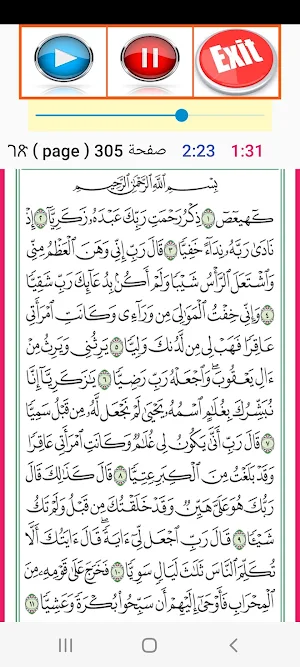 Exit
٢٩ ( page ) 305 صفحة 2:23 1:31
بِسْمِ ٱللَّهِ ٱلرَّحْمَٰنِ ٱلرَّحِيمِ
كٓهيعٓصٓ ١ ذِكْرُ رَحْمَتِ رَبِّكَ عَبْدَهُۥ زَكَرِيَّآ ٢ إِذْ
نَادَىٰ رَبَّهُۥ نِدَآءً خَفِيًّا ٣ قَالَ رَبِّ إِنِّى وَهَنَ ٱلْعَظْمُ مِنِّى
وَٱشْتَعَلَ ٱلرَّأْسُ شَيْبًا وَلَمْ أَكُنۢ بِدُعَآئِكَ رَبِّ شَقِيًّا
٤ وَإِنِّى خِفْتُ ٱلْمَوَٰلِىَ مِن وَرَآءِى وَكَانَتِ ٱمْرَأَتِى
عَاقِرًا فَهَبْ لِى مِن لَّدُنكَ وَلِيًّا ٥ يَرِثُنِى وَيَرِثُ مِنْ
ءَالِ يَعْقُوبَ ۖ وَٱجْعَلْهُ رَبِّ رَضِيًّا ٦ يَٰزَكَرِيَّآ إِنَّا
نُبَشِّرُكَ بِغُلَٰمٍ ٱسْمُهُۥ يَحْيَىٰ لَمْ نَجْعَل لَّهُۥ مِن قَبْلُ سَمِيًّا
٧ قَالَ رَبِّ أَنَّىٰ يَكُونُ لِى غُلَٰمٌ وَكَانَتِ ٱمْرَأَتِى عَاقِرًا
وَقَدْ بَلَغْتُ مِنَ ٱلْكِبَرِ عِتِيًّا ٨ قَالَ كَذَٰلِكَ قَالَ
رَبُّكَ هُوَ عَلَىَّ هَيِّنٌ وَقَدْ خَلَقْتُكَ مِن قَبْلُ وَلَمْ تَكُ
شَيْـًٔا ٩ قَالَ رَبِّ ٱجْعَل لِّىٓ ءَايَةً ۚ قَالَ ءَايَتُكَ أَلَّا
تُكَلِّمَ ٱلنَّاسَ ثَلَٰثَ لَيَالٍ سَوِيًّا ١٠ فَخَرَجَ عَلَىٰ قَوْمِهِۦ مِنَ
ٱلْمِحْرَابِ فَأَوْحَىٰٓ إِلَيْهِمْ أَن سَبِّحُوا۟ بُكْرَةً وَعَشِيًّا ١١